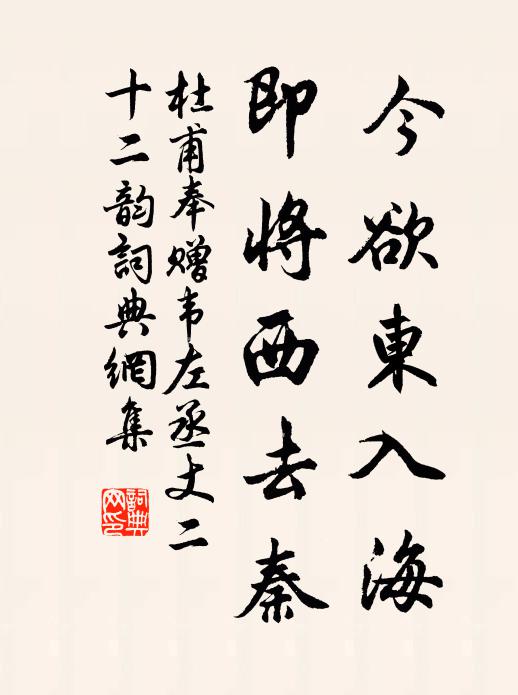 今欲東入海
即将西去秦
杜甫奉赠韦左丞丈二
十二韵詞典網集
詞典网印